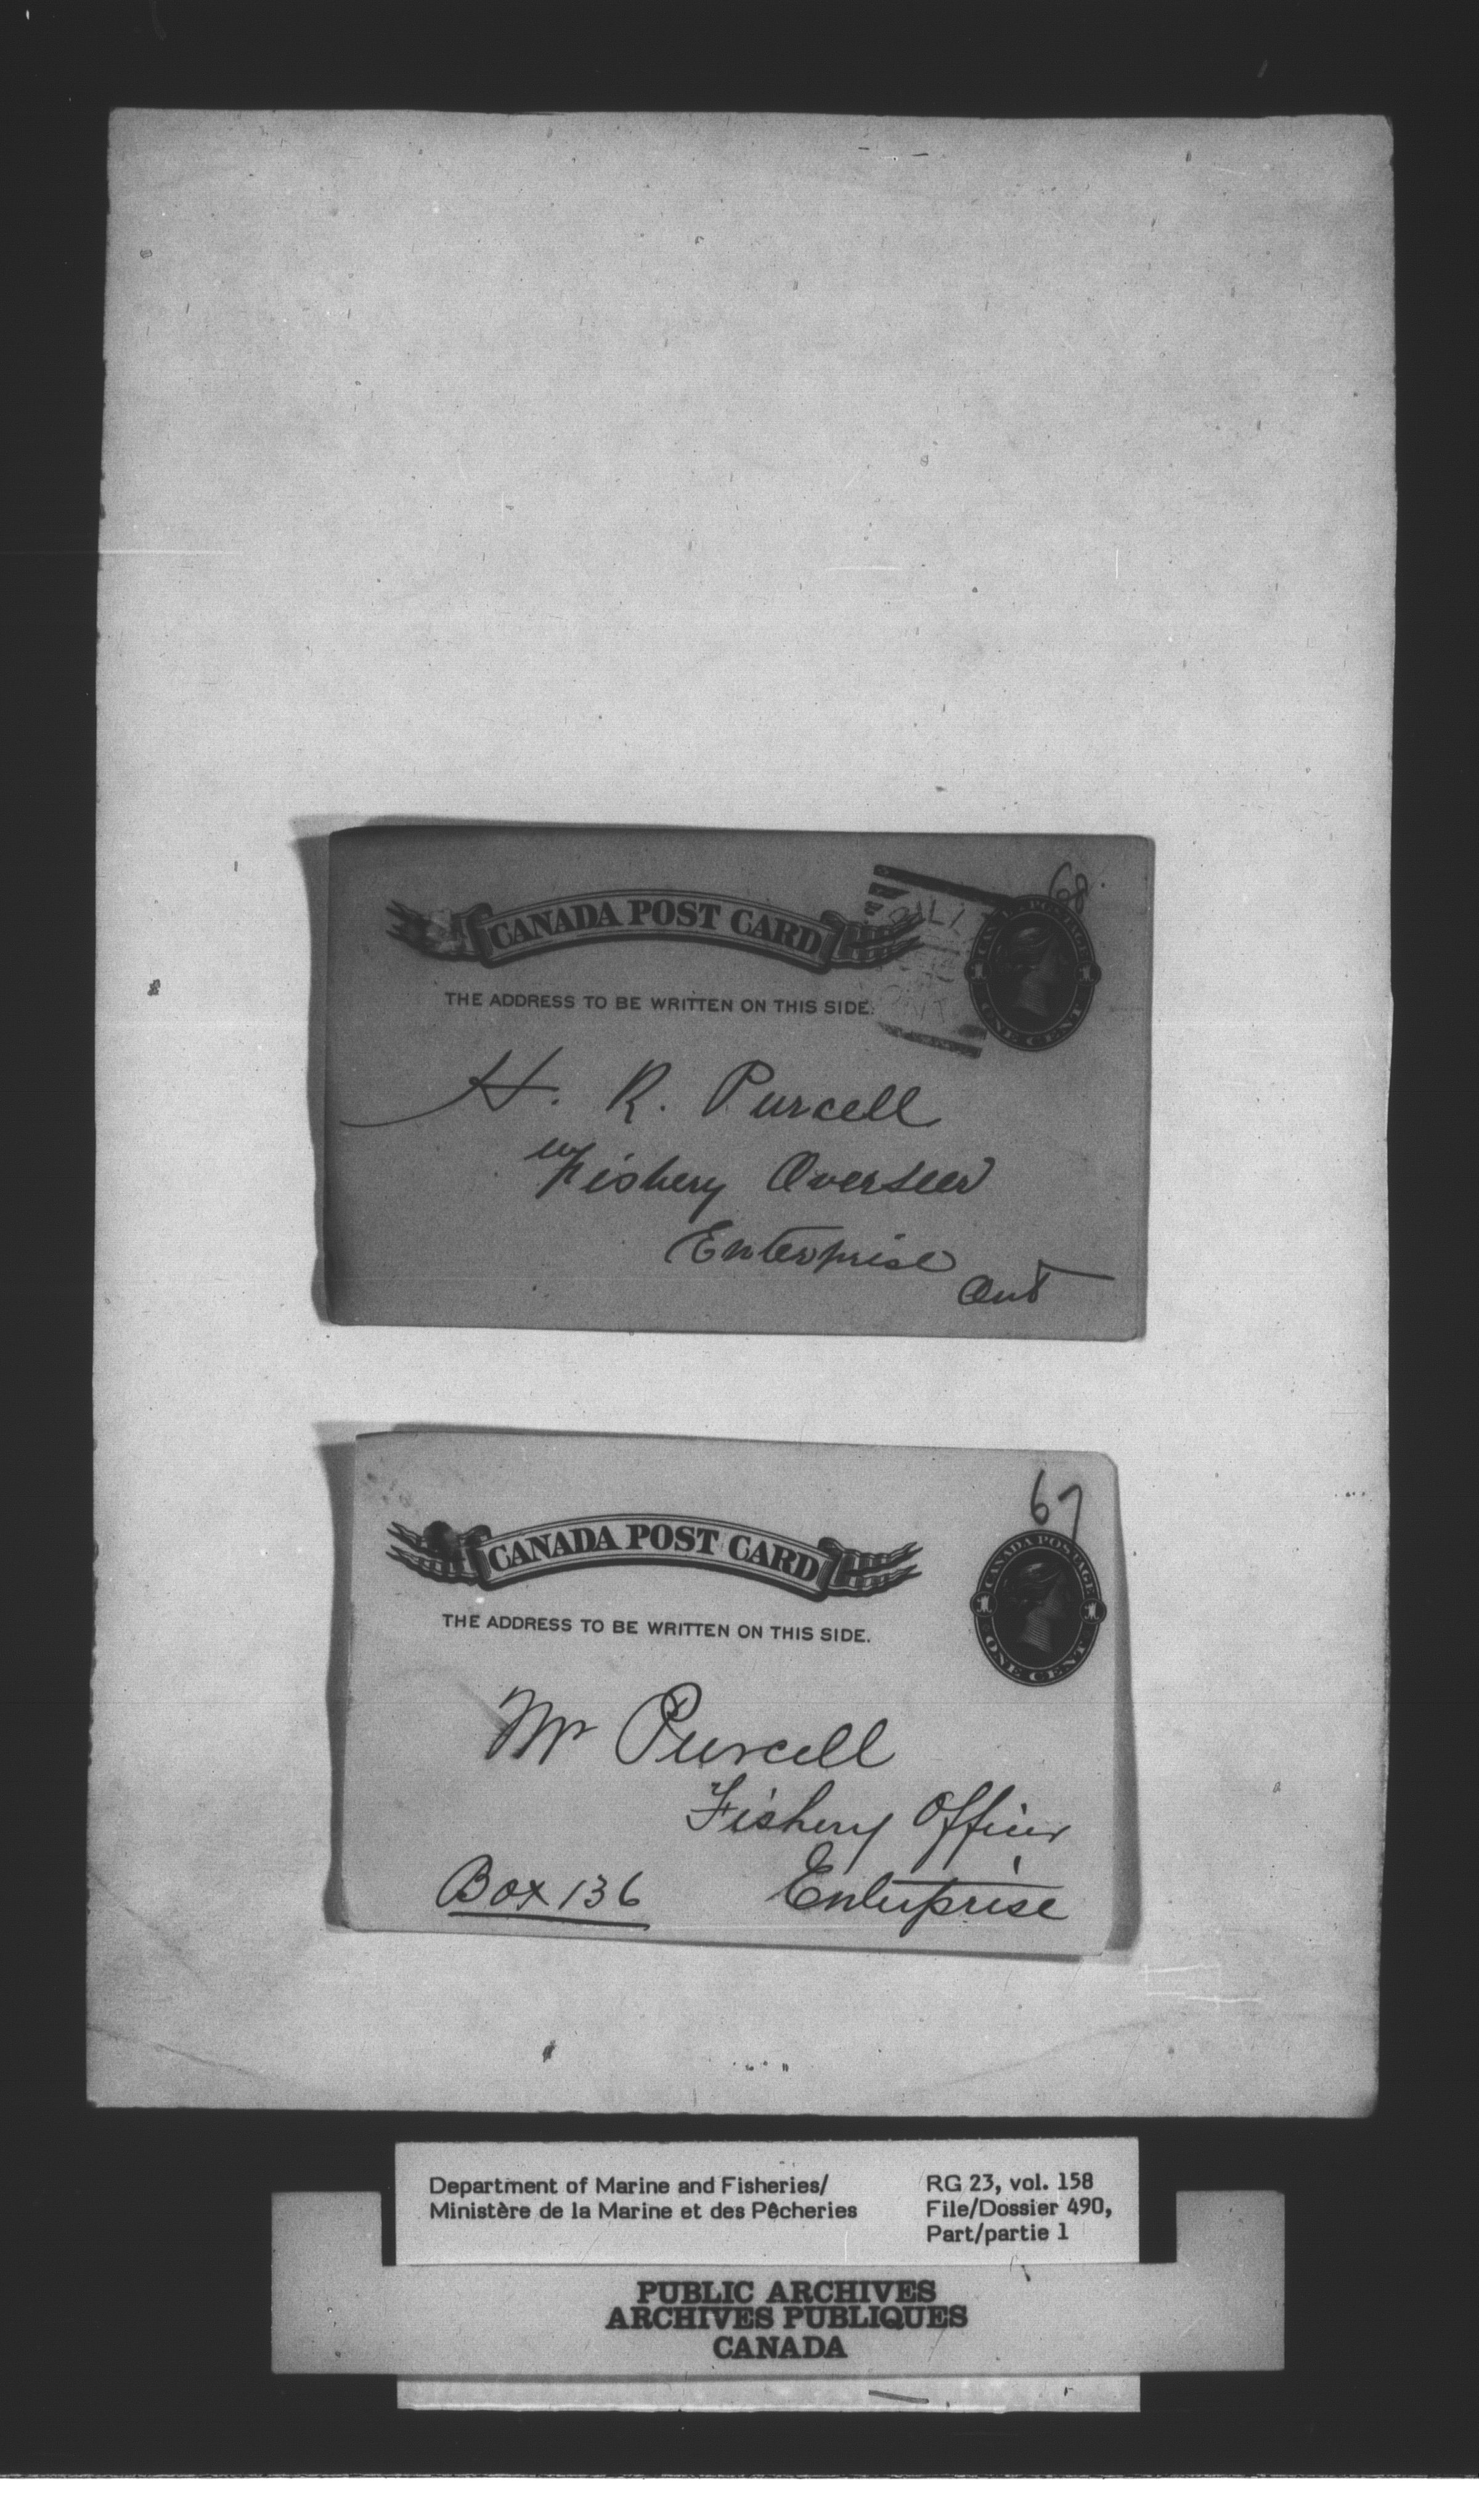 68.
CANADA POST CARD
CANADA POSTAGE
1 1
ONE CENT
THE ADDRESS TO BE WRITTEN ON THIS SIDE.
H. R. Purcell
Fishery Overseer
Enterprise
Ont
67
CANADA POST CARD
CANADA POSTAGE
1 1
ONE CENT
THE ADDRESS TO BE WRITTEN ON THIS SIDE.
Mr Purcell
Fishery Officer
Box 136 Enterprise
Department of Marine and Fisheries/ RG 23, vol. 158
Ministère de la Marine et des Pêcheries File/Dossier 490,
Part/partie 1
PUBLIC ARCHIVES
ARCHIVES PUBLIQUES
CANADA